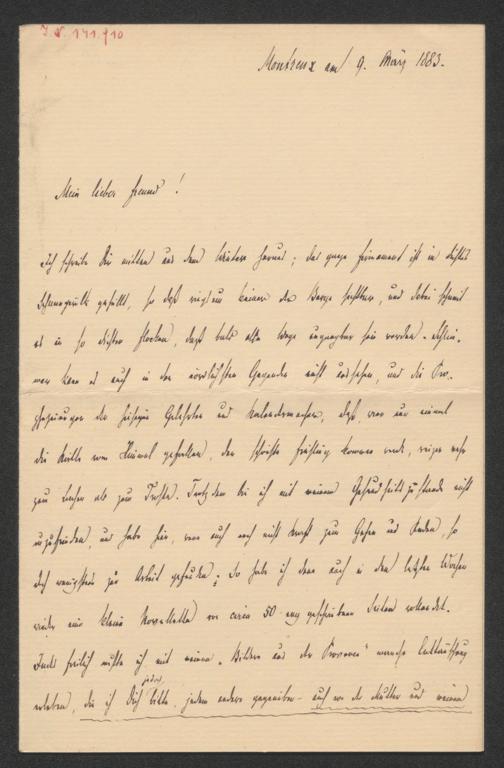 I. N. 141.910
Montreux am 9. März 1883.
Mein lieber Freund!
Ich schreibe Dir mitten aus dem Winter heraus; das ganze Firmament ist in dichtes
Schneegewölk gehüllt, so daß ringsum keiner der Berge sichtbar, und dabei schneit
es in so dichten Flocken, daß bald alle Wege ungangbar sein werden.
man kann es auch in den nördlichsten Gegenden nicht und die Pro-
phezeiungen der hiesigen Gelehrten und Kalendermacher, daß, wenn nur einmal
die Kälte vom Himmel gefallen, der schönste Frühling kommen werde, reizen mehr
zum Lachen als zum Troste. Trotzdem bin ich mit meinem Gesundheitszustande nicht
unzufrieden, und habe hier, wenn auch noch nicht Kraft zum Gehen und Reden, so
doch wenigstens zur Arbeit gefunden; so habe ich denn auch in den letzten Wochen
wieder eine kleine Novellette von circa 50 eng geschriebenen Seiten vollendet.
Auch freilich mußte ich mit meinen „Bildern aus der Provence" manche Enttäuschung
erleben, die ich Dich bitte, jedem andern gegenüber – auch vor der Mutter und meinen